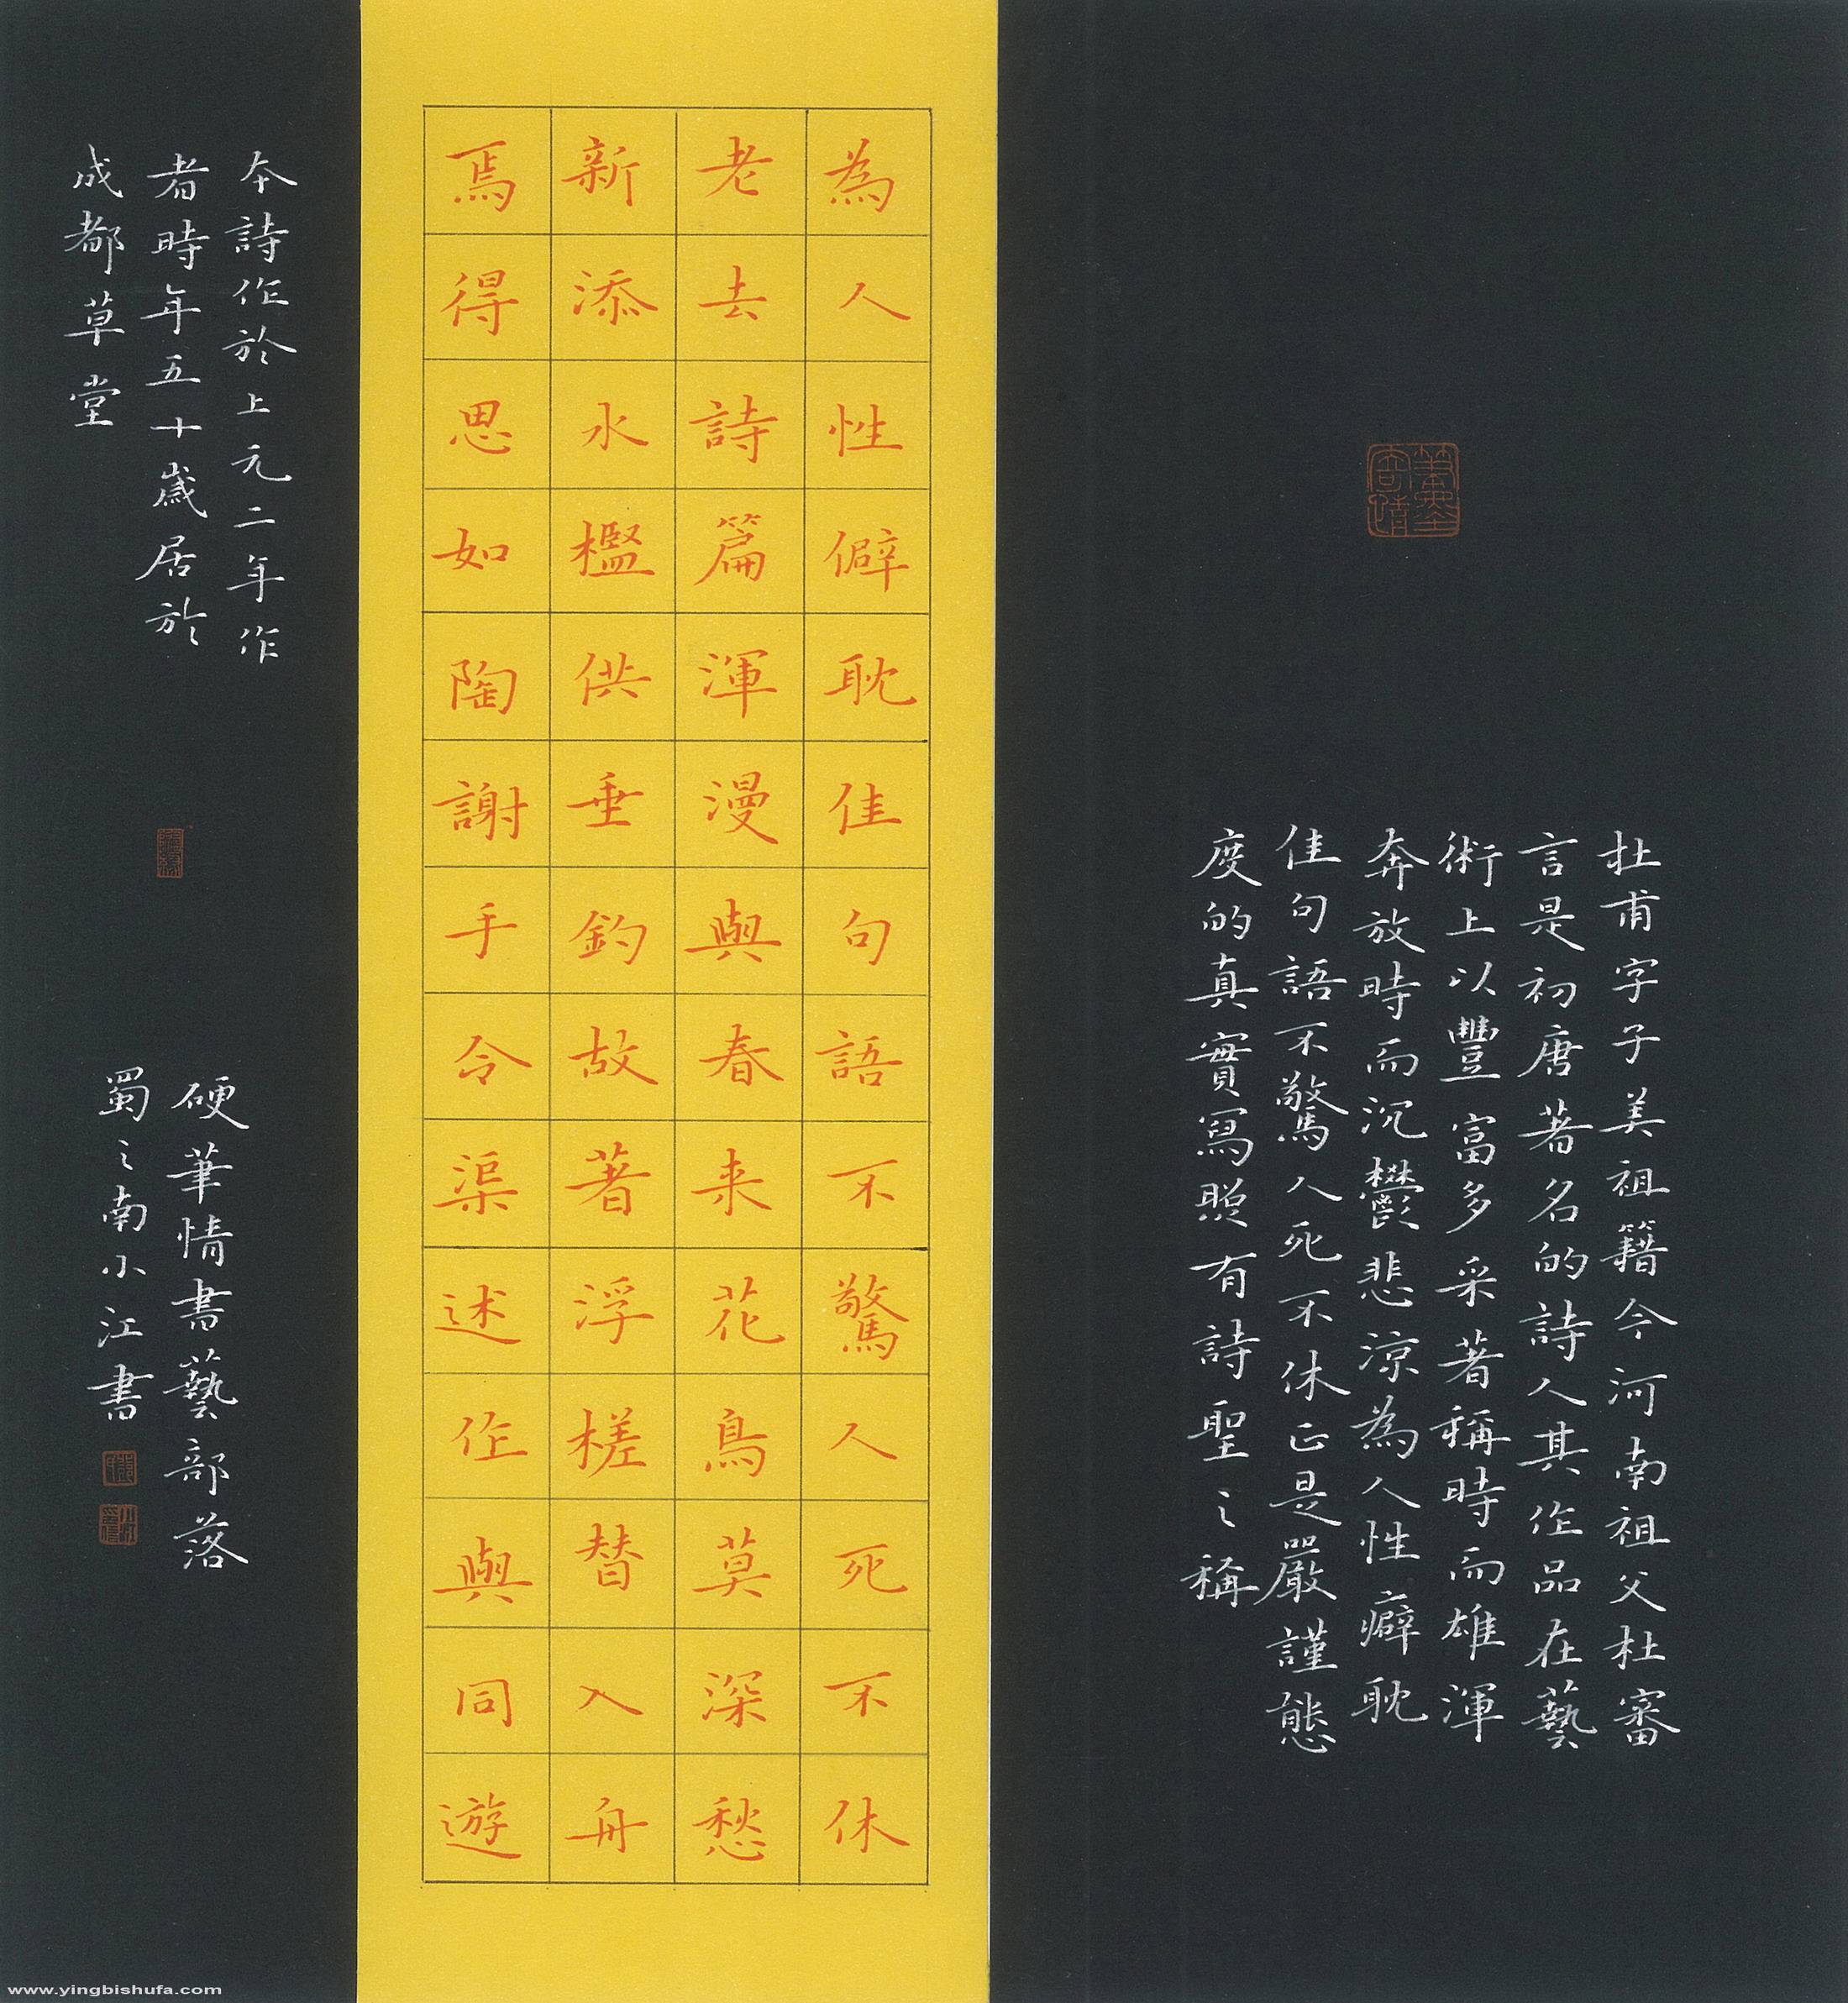 杜甫字子美祖籍今河南祖父杜審
言是初唐著名的詩人其作品在藝
術上以豐富多采著稱時而雄渾
奔放時而沉鬱悲涼為人性癖耽
佳句語不驚人死不休正是嚴謹態
度的真實寫照有詩聖之稱
為人性僻耽佳句語不驚人死不休
老去詩篇渾漫與春来花鳥莫深愁
新添水檻供垂釣故著浮槎替入舟
焉得思如陶謝手令渠述作與同遊
本詩作於上元二年作
者時年五十歲居於
成都草堂
硬筆情書藝部落
蜀之南小江書
www.yingbishufa.com